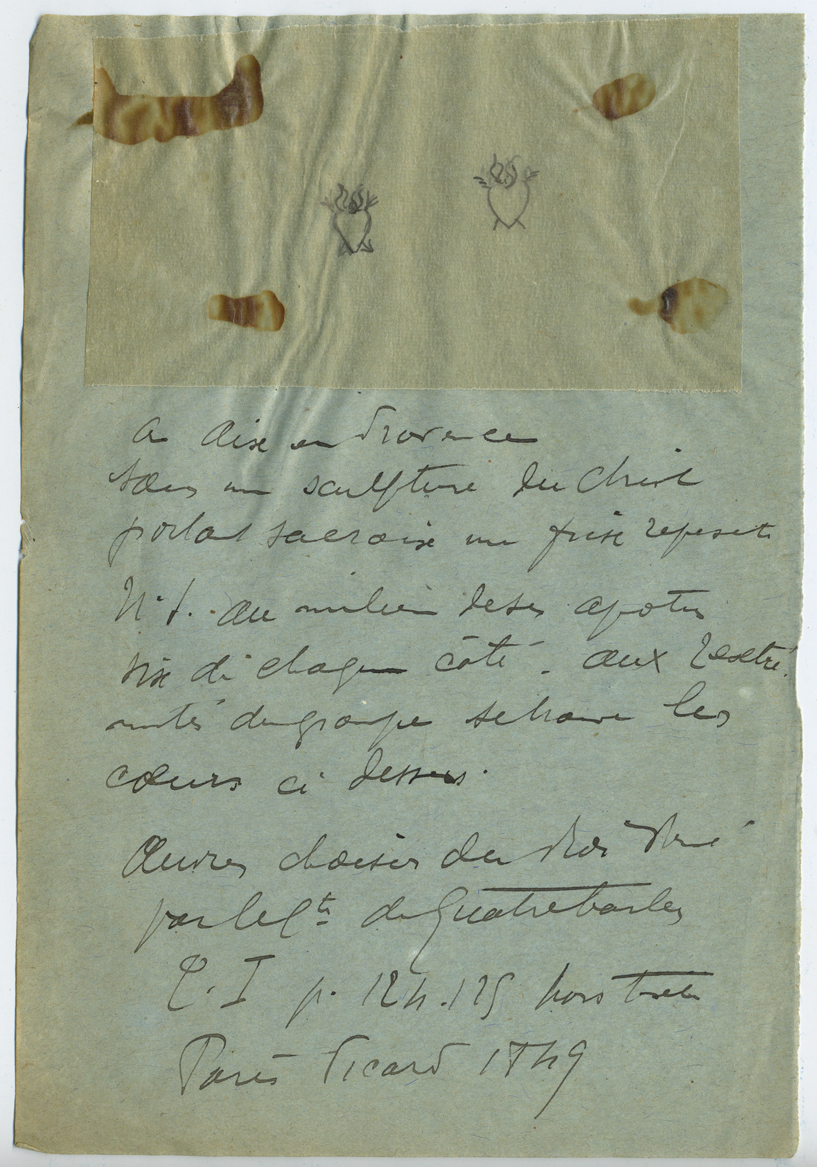 a Aix en Provence
sous un sculpture du Christ
portant sa croix une frise represente
N. S. au milieu de ses apotres
six de chaque côté. aux extré
mités du groupe se trouve les
cœurs ci dessus.
Œuvres choisies du Roi René
par le Cte de Quatrebarbes
T. I p. 124.125 hors texte
Paris Picard 1849